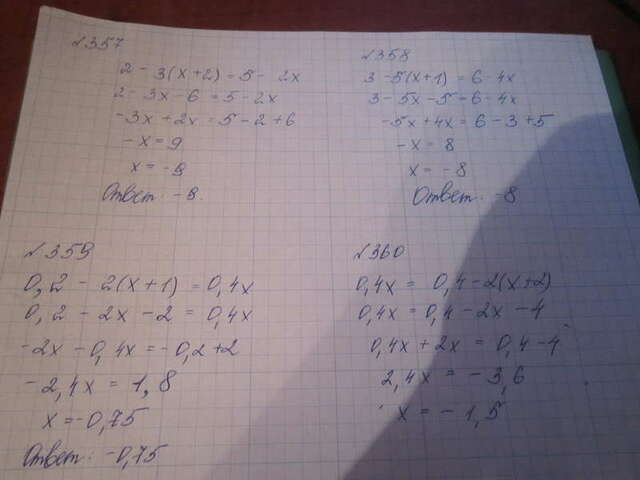 №357
2 - 3(x+2) = 5 - 2x
2 - 3x - 6 = 5 - 2x
-3x + 2x = 5 - 2 + 6
-x = 9
x = -9
Ответ: -9.
№358
3 - 5(x+1) = 6 - 4x
3 - 5x - 5 = 6 - 4x
-5x + 4x = 6 - 3 + 5
-x = 8
x = -8
Ответ: -8
№359
0,2 - 2(x+1) = 0,4x
0,2 - 2x - 2 = 0,4x
-2x - 0,4x = -0,2+2
-2,4x = 1,8
x = -0,75
Ответ: -0,75
№360
0,4x = 0,4 - 2(x+2)
0,4x = 0,4 - 2x - 4
0,4x + 2x = 0,4 - 4
2,4x = -3,6
x = -1,5